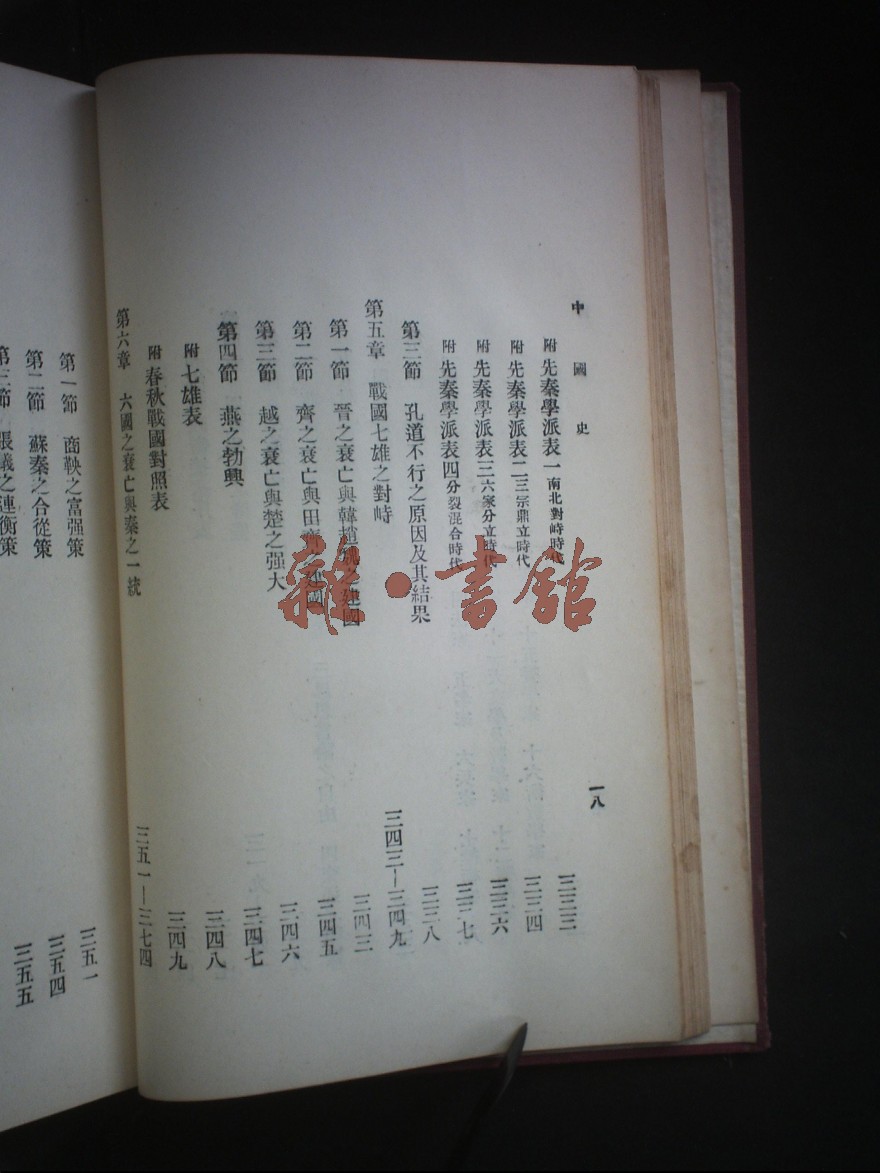 中國史
一八
附 先秦學派表一南北對峙時代 三三三
附 先秦學派表二三宗鼎立時代 三三四
附 先秦學派表三六家分立時代 三三六
附 先秦學派表四分裂混合時代 三三七
第三節 孔道不行之原因及其結果 三三八
第五章 戰國七雄之對峙 三四三—三四九
第一節 晉之衰亡與韓趙魏之建國 三四三
第二節 齊之衰亡與田齊建國 三四五
第三節 越之衰亡與楚之强大 三四六
第四節 燕之勃興 三四七
附 七雄表 三四八
附 春秋戰國對照表 三四九
第六章 六國之衰亡與秦之一統 三五一—三七四
第一節 商鞅之富强策 三五一
第二節 蘇秦之合從策 三五四
第三節 張儀之連衡策 三五五
雜·書館